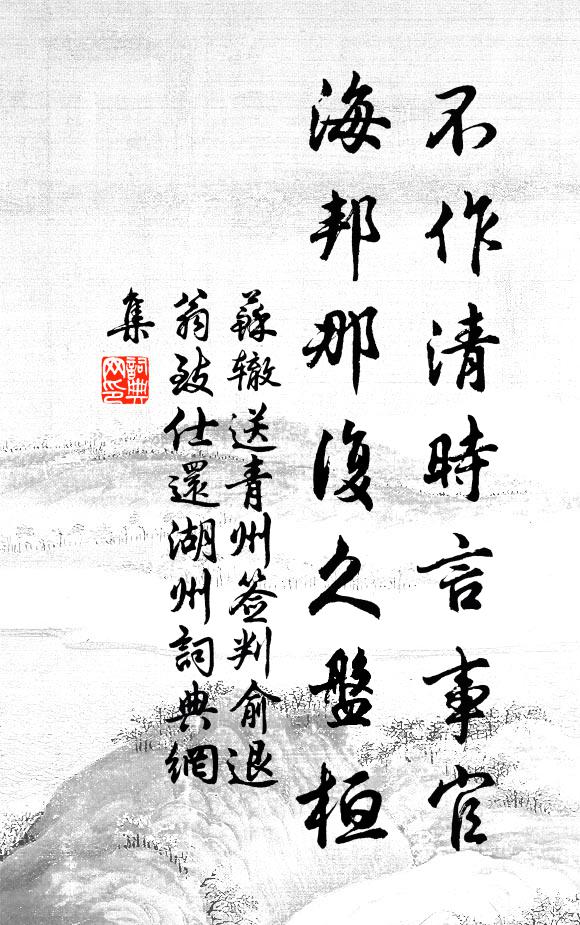 不作清時言事官
海邦那復久盤桓
蘇辙送青州簽判俞退
翁致仕還湖州詞典網
集
詞典
网印